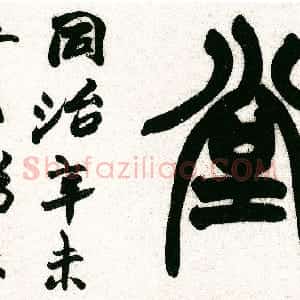 堂
同治辛未
Shufaziliao.COM